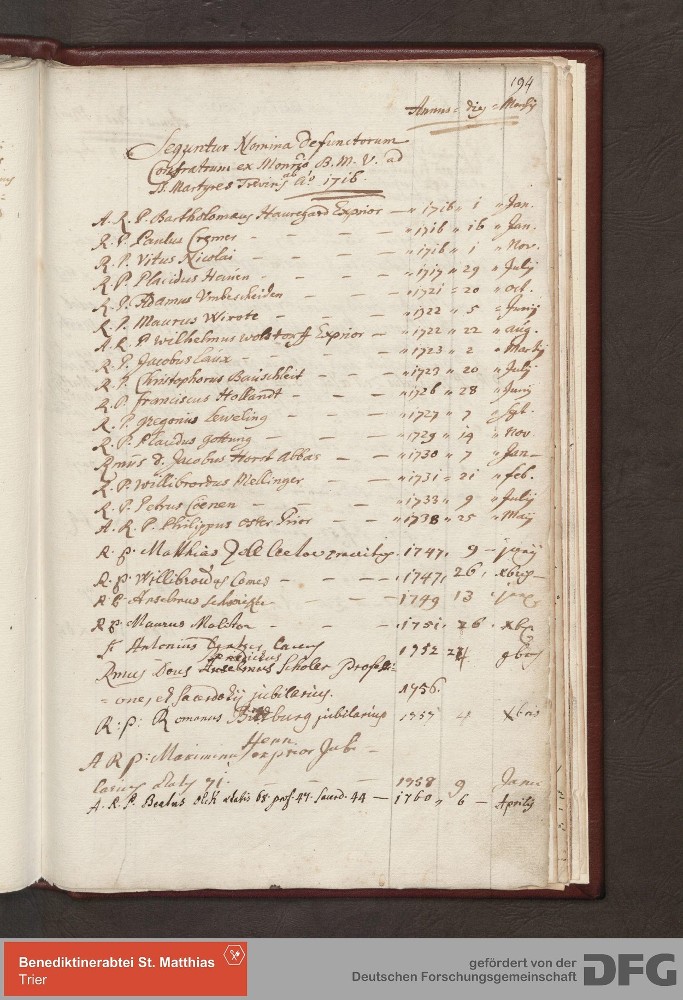 194
Annus = dies = Mensis
Sequntur Nomina defunctorum
Confratrum ex Monrio B. M. V. ad
SS. Martyres Treviris ab Ao 1716.
A. R. P. Bartholomæus Hauregard Exprior — " 1716 " 1 " Jan.
R. P. Paulus Cremer — — — " 1716 " 16 " Jan.
R. P. Vitus Nicolai — — — " 1716 " 1 " Nov.
R. P. Placidus Hauen — — — " 1717 " 29 " July
R. P. Adamus Umbescheiden — — " 1721 = 20 " oct.
R. P. Maurus Wirote — — — " 1722 " 5 " Junij
A. R. P. Wilhelmus Exprior — " 1722 " 22 " aug.
R. P. Jacobus Caux — — — " 1723 " 2 " Martij
R. P. Christophorus Bauschleit — — " 1723 " 20 " July
R. P. Franciscus Hollandt — — " 1726 " 28 " Junij
R. P. gregorius Leweling — — " 1727 " 7
R. P. Placidus — — — " 1729 " 14 " Nov.
Rmus d. Jacobus Horst Abbas — — " 1730 " 7 " Jan—
R. P. Willibrordus Mellinger — — " 1731 = 21 " feb.
R. P. Petrus Cöenen — — — " 1733 " 9 " July
A. R. P. Philippus Oster Prior — — " 1738 " 25 " Maij
R. P. Matthias 1747, 9 —
R. P. Willibrordus Comes — — — 1747, 26, xbris—
R. P. Anselmus — — — 1749 13
R. P. Maurus Molitor — — — 1751 26 xbr
fr Antonius 1752
Rmus Dnus Scholer Profess:
= one, et sacerdotij jubilarius. 1756.
R: P: Romanus Bittburg jubilarius 1757 4 xbris
A R P: Maximinus Henn exprior Jubi-
larius ætatis 71. — — — 1758 9 Janu
A. R. P. Beatus ætatis 68. prof. 47. sacerd. 44 — 1760 " 6 — Aprilis
Benediktinerabtei St. Matthias
Trier
gefördert von der
Deutschen Forschungsgemeinschaft
DFG